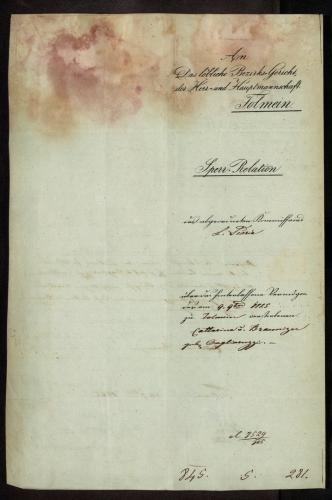 An
Das löbliche Bezirks-Gericht
der Herr- und Hauptmannschaft
Tolmein.
Sperr-Relation
des abgeordneten Kommissärs
über das hinterlassene Vermögen
der am 9. 9br
zu Tolmein verstorbenen
Catharina v.
geb.
845. 5. 281.